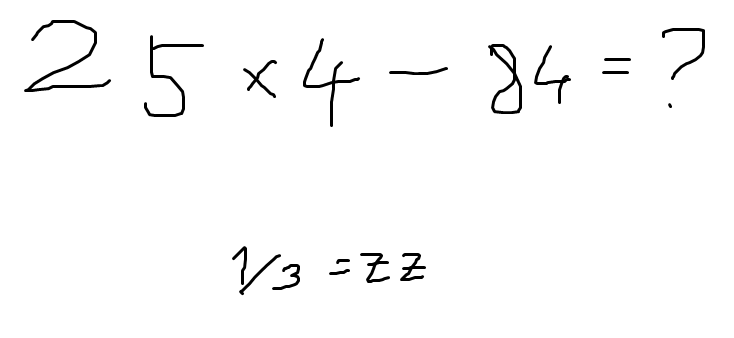 25 × 4 - 84 = ?
1/3 = zz